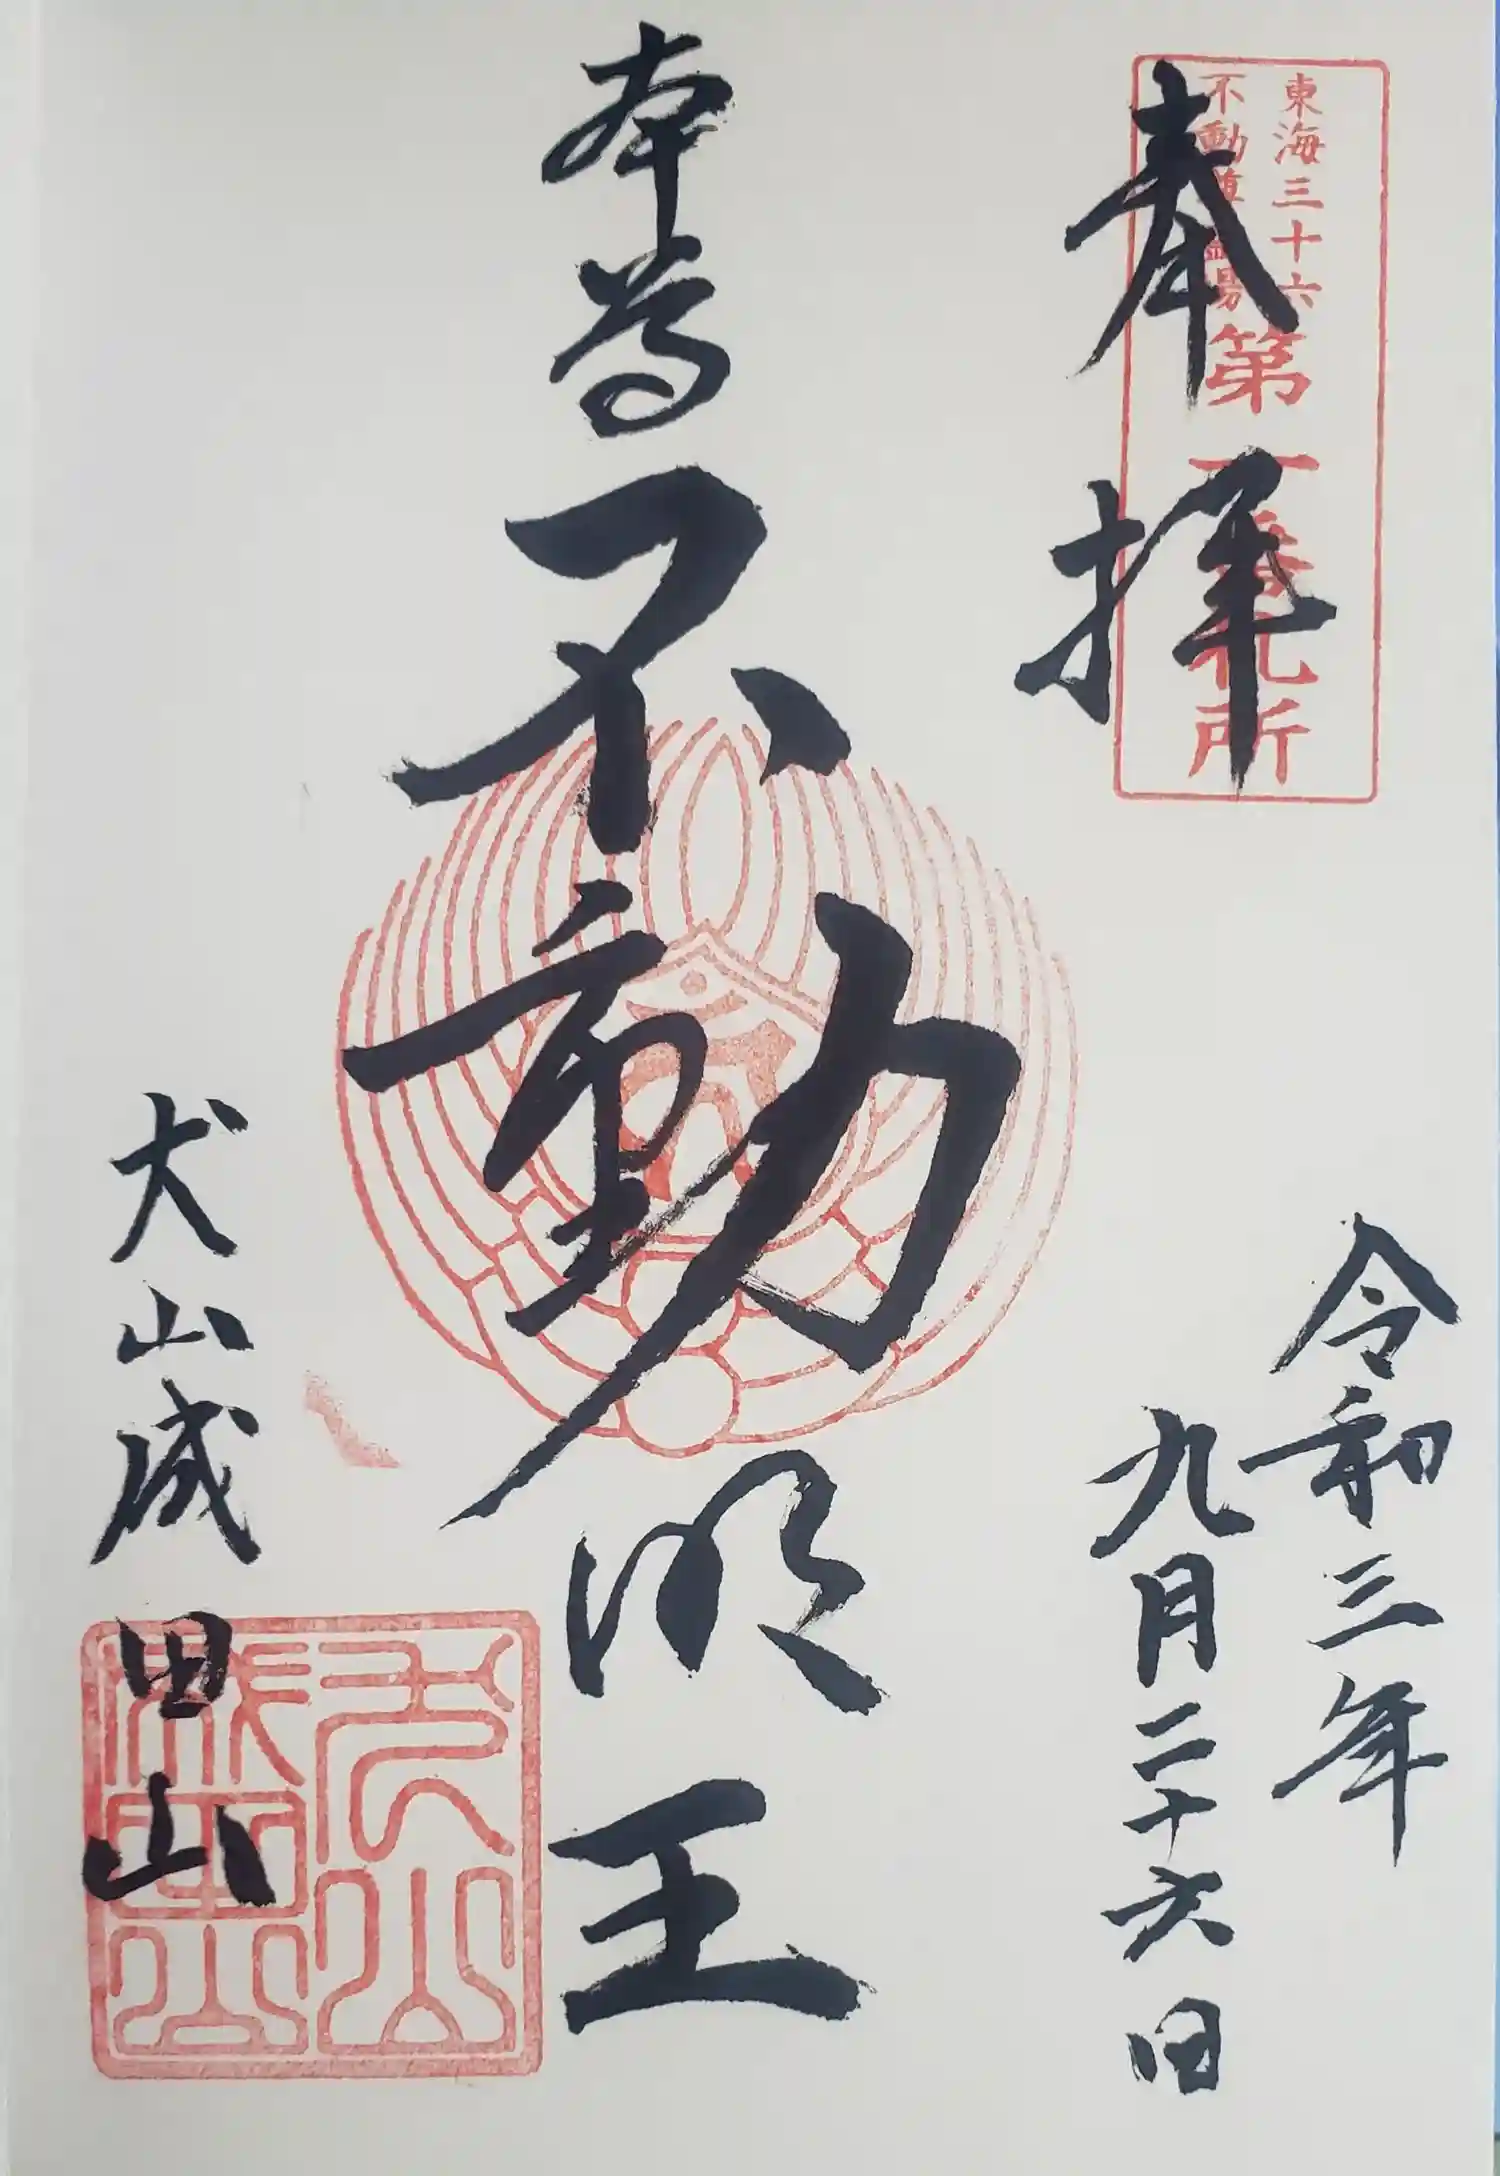 奉拝
東海三十六
不動尊霊場
第一番札所
令和三年
九月二十六日
本尊不動明王
犬山成田山
犬山成田山